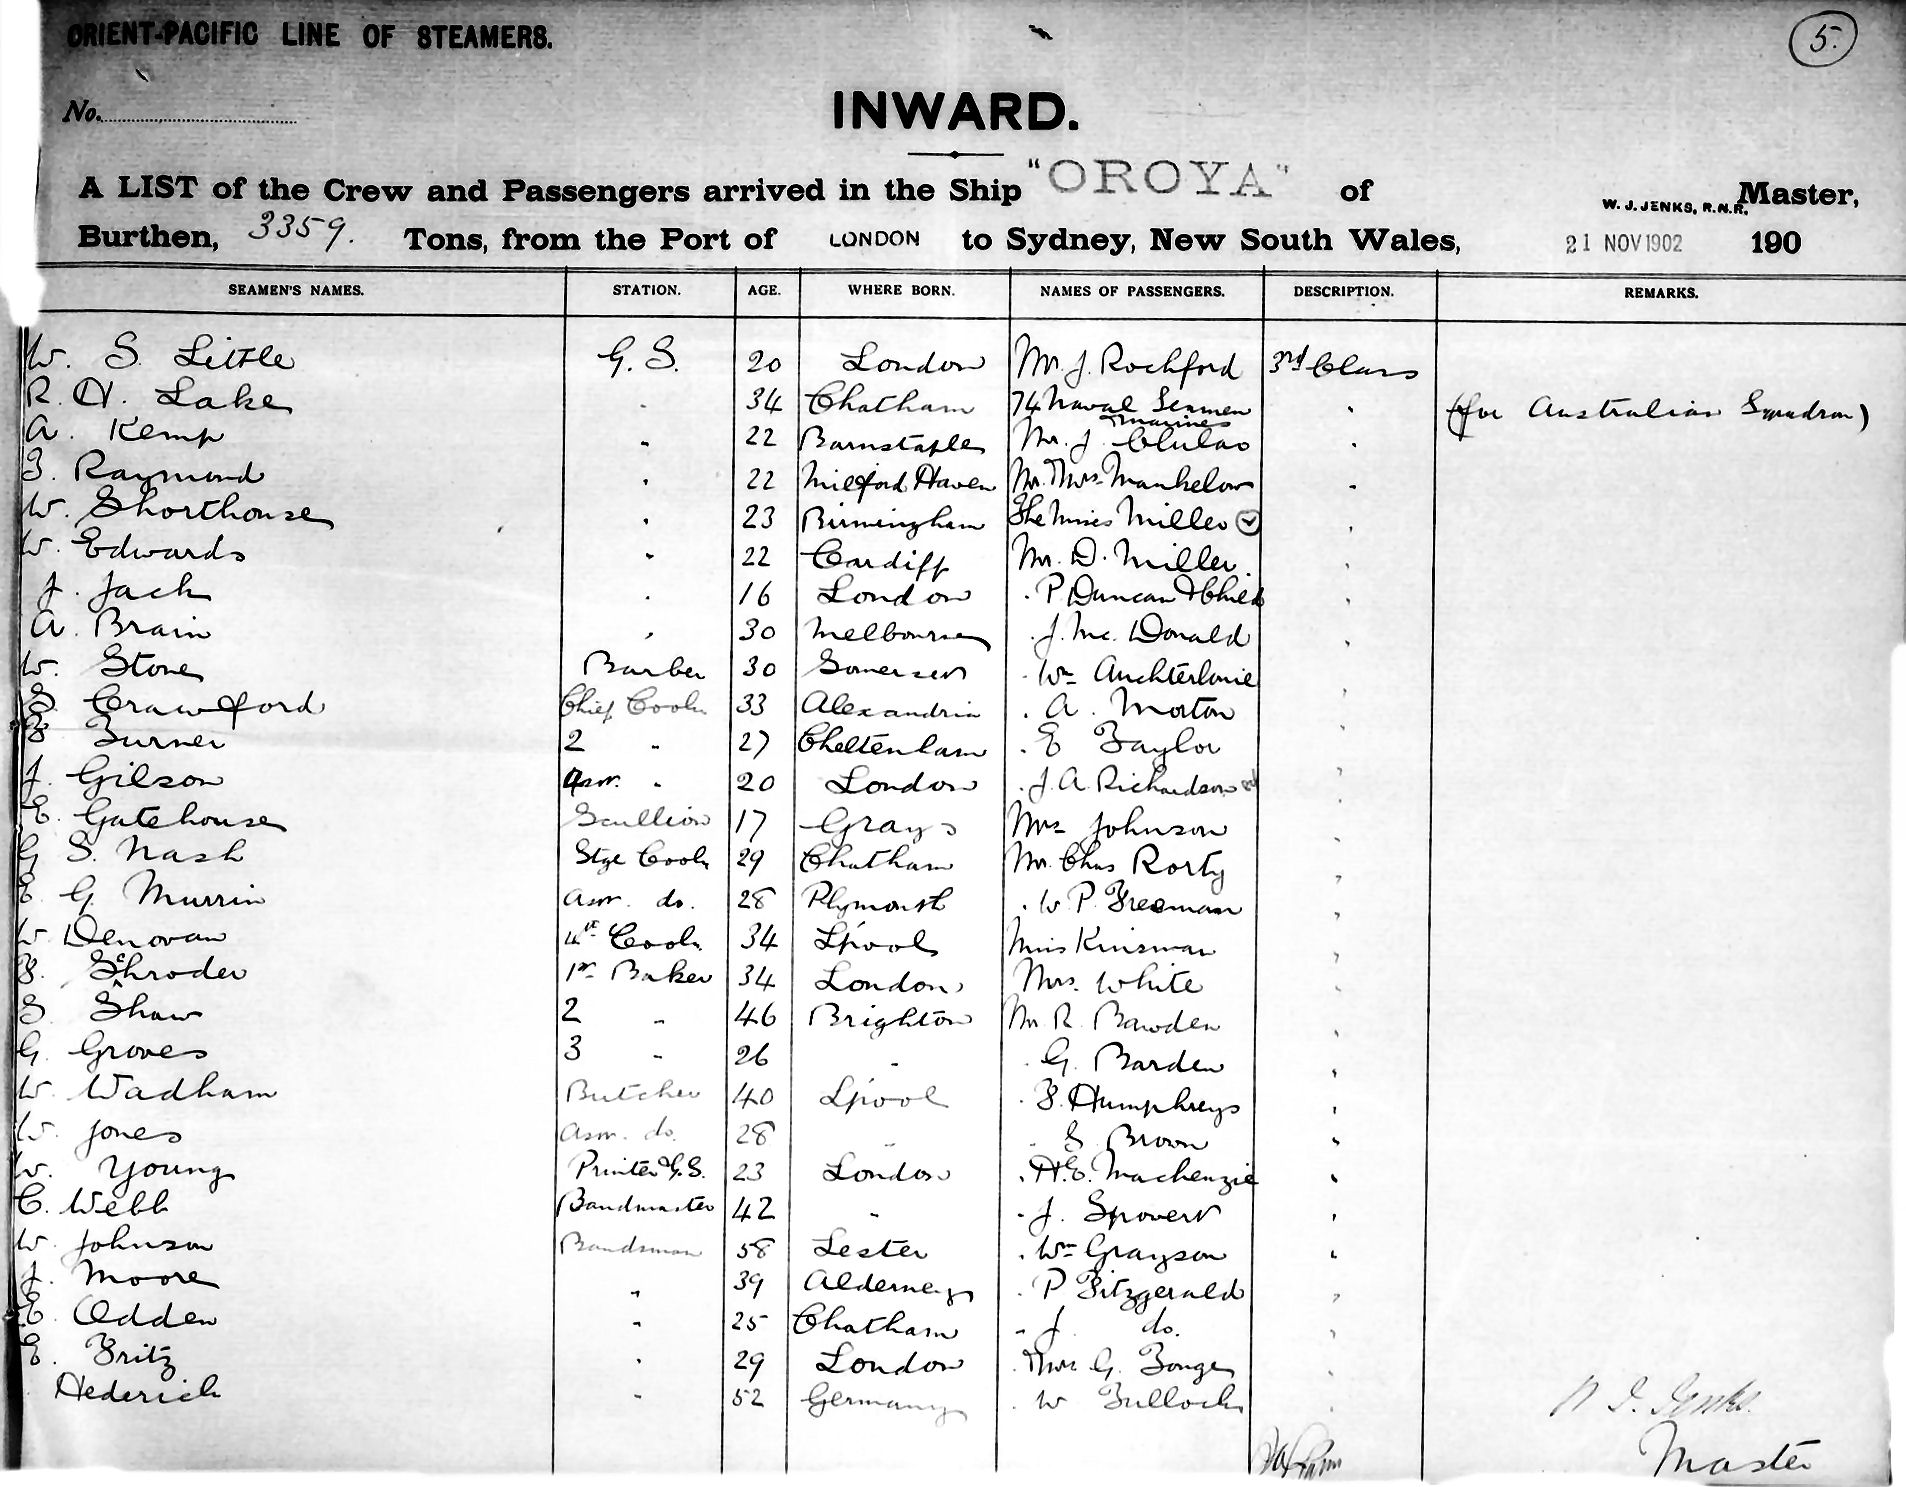 ORIENT-PACIFIC LINE OF STEAMERS.
5.
No.
INWARD.
A LIST of the Crew and Passengers arrived in the Ship "OROYA" of W. J. JENKS, R.N.R. Master,
Burthen, 3359. Tons, from the Port of LONDON to Sydney, New South Wales, 21 NOV 1902 190
SEAMEN'S NAMES. STATION. AGE. WHERE BORN. NAMES OF PASSENGERS. DESCRIPTION. REMARKS.
W. S. Little G. S. 20 London Mr. J. Rochford 3rd Class
R. H. Lake " 34 Chatham 74 Naval Seamen " (for Australian Squadron)
& marines
A. Kemp " 22 Barnstaple Mr. J. Clulao "
F. Raymond " 22 Milford Haven Mr. & Mrs. Mankelow "
W. Shorthouse " 23 Birmingham The Misses Miller "
W. Edwards " 22 Cardiff Mr. D. Miller "
J. Jack " 16 London " P. Duncan & Child "
A. Brain " 30 Melbourne " J. Mc. Donald "
W. Stone Barber 30 Somerset " Wm Auchterlonie
S. Crawford Chief Cook 33 Alexandria " A. Morton "
F. Turner 2 " 27 Cheltenham " E Taylor "
J. Gilson Asst. " 20 London " J. A. Richardson "
E. Gatehouse Scullion 17 Grays Mrs Johnson "
G S. Nash Stge Cook 29 Chatham Mr. Chas Rorty "
E. G Murrin Asst. do. 28 Plymouth " W. P. Freeman "
W Denovan 4th Cook 34 L'pool Miss Kinsman "
F. Schroder 1st Baker 34 London Mrs. White "
S Shaw 2 " 46 Brighton Mr R. Bawden "
G. Groves 3 " 26 " " G. Barden "
W. Wadham Butcher 40 L'pool " F. Humphreys "
W. Jones Asst. do. 28 " " S Brown "
W. Young Printer & G.S. 23 London " H. E. Mackenzie "
C. Webb Bandmaster 42 " " J. Spovert "
W. Johnson Bandsman 58 Lester " Wm Grayson "
J. Moore " 39 Alderney " P Fitzgerald "
E. Odden " 25 Chatham " J do. "
E. Fritz " 29 London " Thos G. Tonge "
Hederich " 52 Germany " W Tullock "
W. J. Jenks.
Master